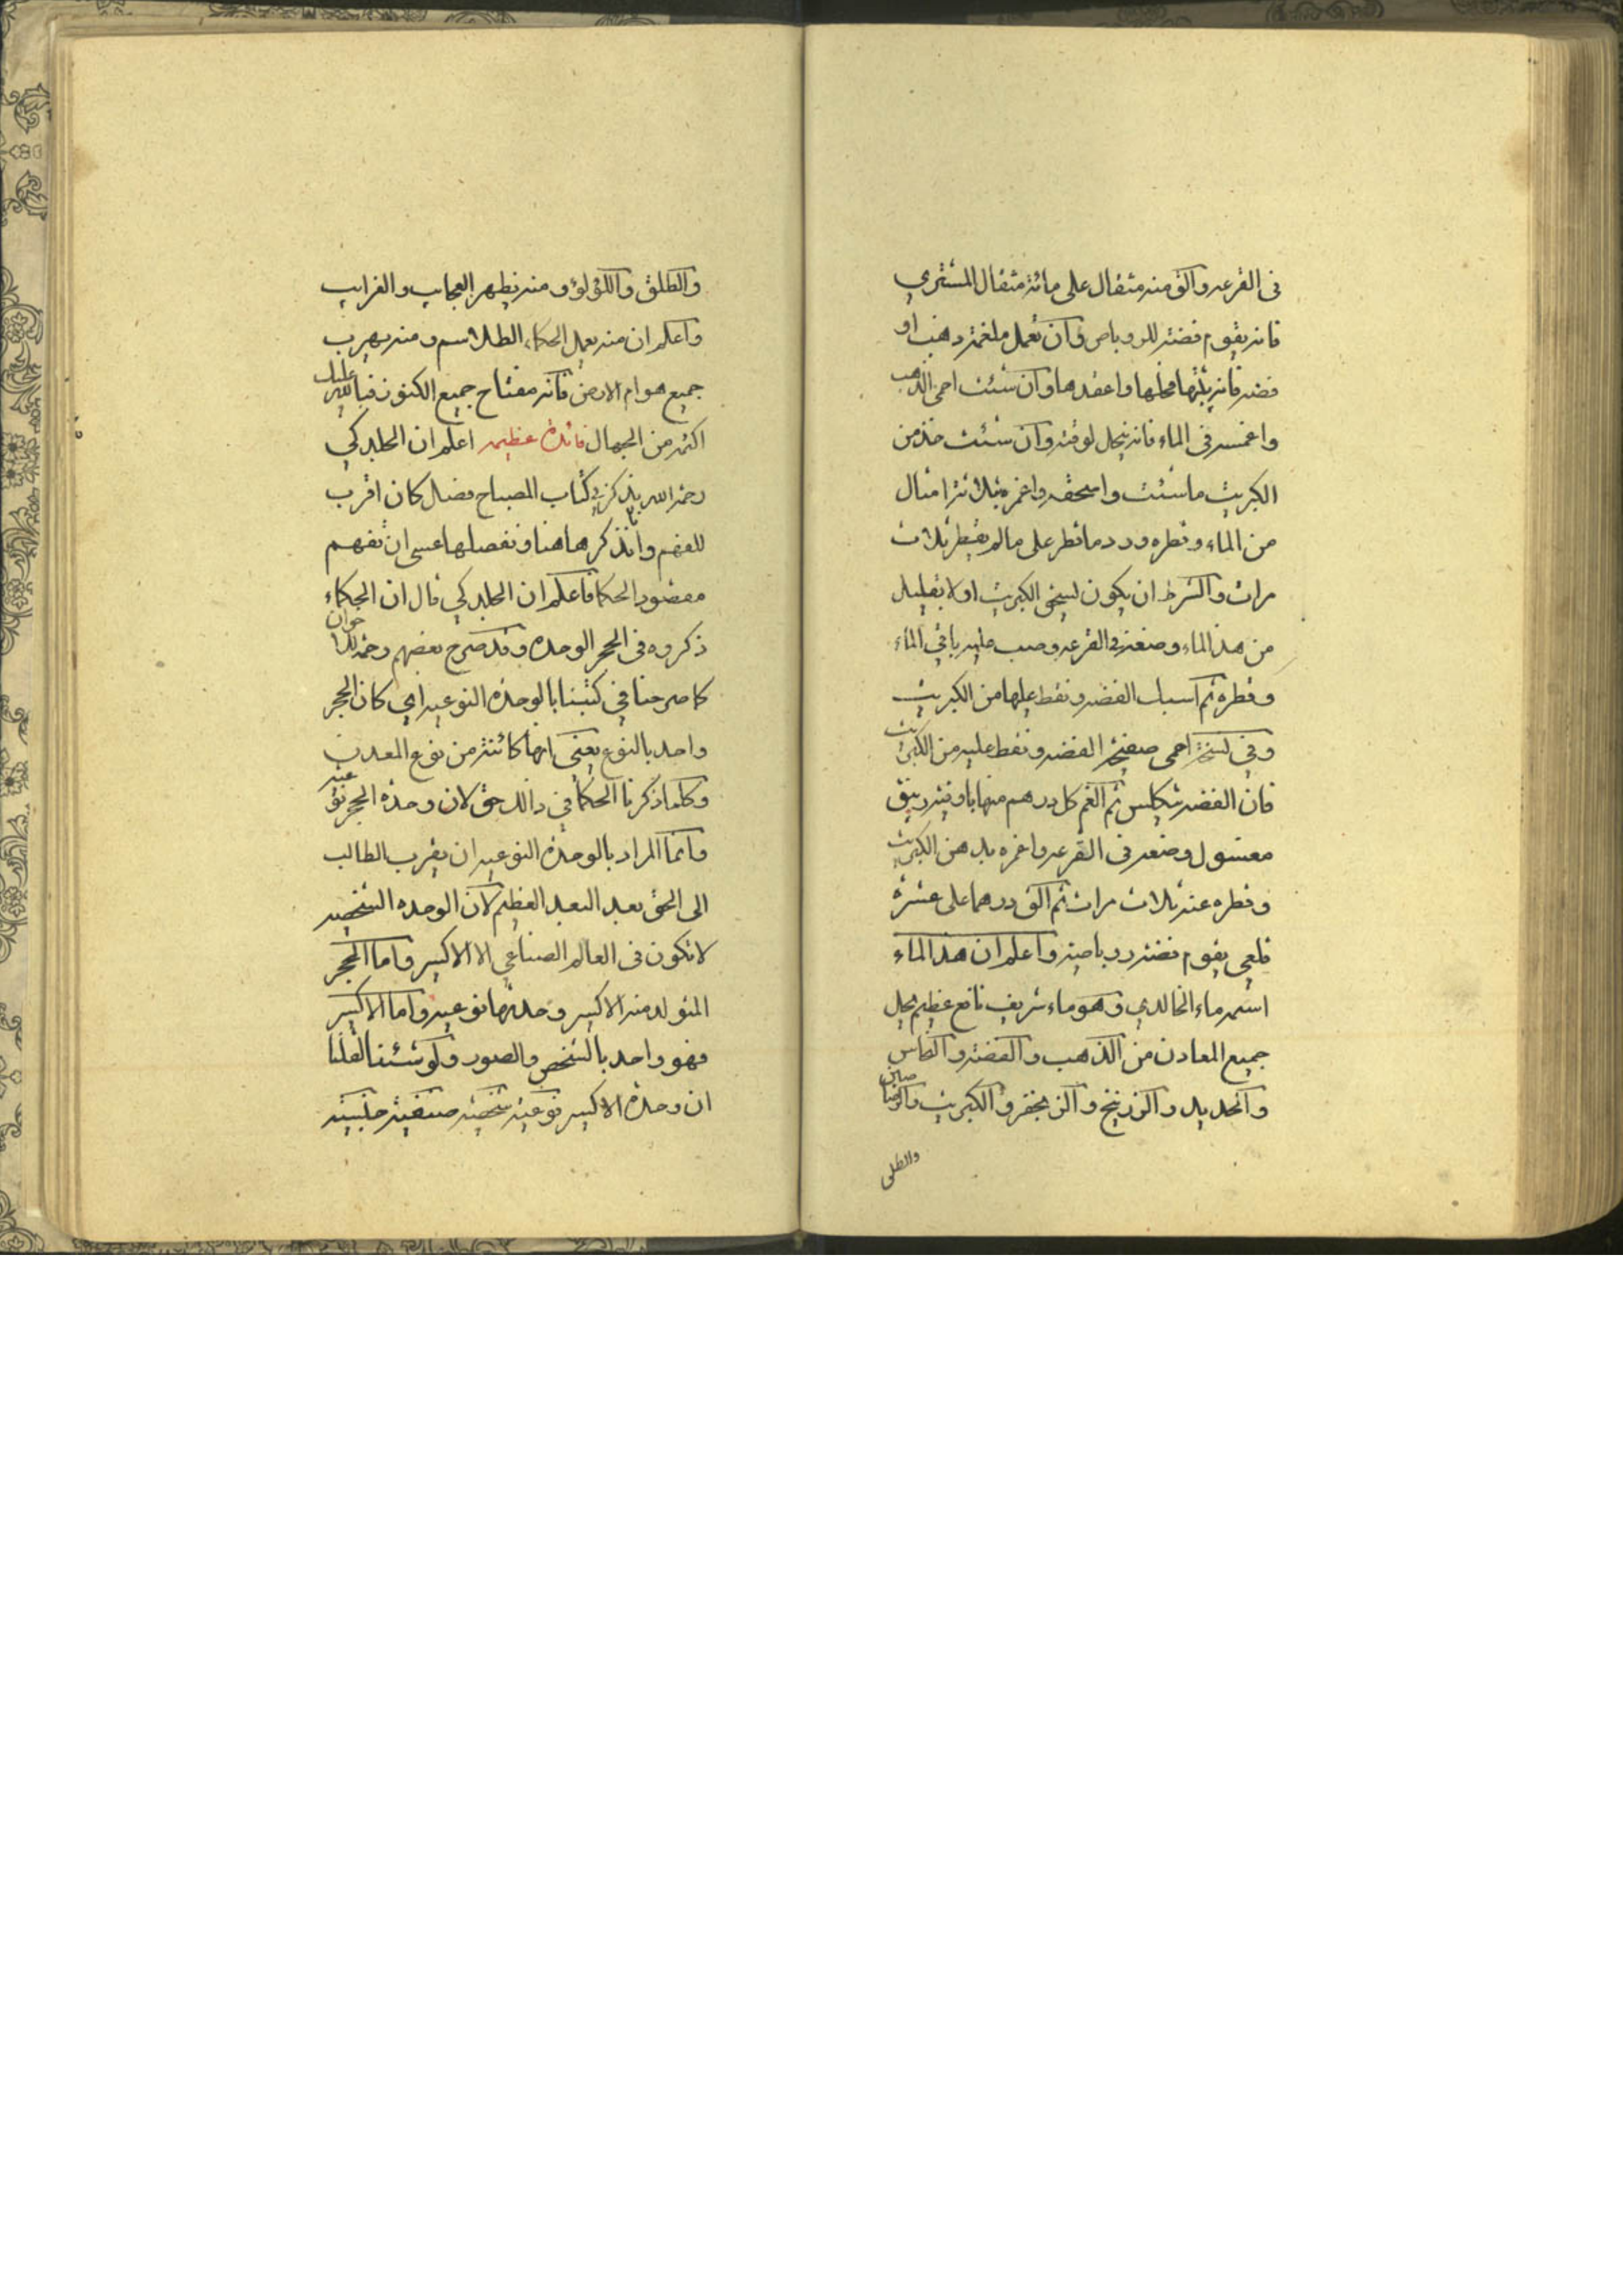 فى القرعه والق منه مثقال على مائة مثقال المشتري
فانه يقوم فضة للروباص وان تعمل ملغمة ذهب او
فضه فانه يثبتها فحلها واعقدها وان شئت احمى الذهب
واغمسه فى الماء فانه ينحل لوقته وان شئت خذ من
الكبريت ما شئت واسحقه واغمره بثلاثة امثال
من الماء وقطره ورد ما قطر على ما لم يقطر ثلاث
مرات والشرط ان يكون لسحق الكبريت اولا بقليل
من هذ الماء وضعه فى القرعه وصب عليه باقي الماء
وقطره ثم اسبك الفضه ونقط عليها من الكبريت
وفي نسخة احمى صفيحة الفضه ونقط عليه من الكبريت
فان الفضه تتكلس ثم الغم كل درهم منها باوقية زيبق
مغسول وضعه فى القرعه واغمره بدهن الكبريت
وقطره عنه ثلاث مرات ثم الق درهما على عشرة
قلعي يقوم فضة روباصية واعلم ان هذ الماء
اسمه ماء الخالدي وهو ماء شريف نافع عظيم يحل
جميع المعادن من الذهب والفضة والنحاس
والحديد والزرنيخ والزنجفر والكبريت والرصاص
والطلق
والطلق واللؤلؤ ومنه يظهر العجايب والغرايب
واعلم ان منه يعمل الحكماء الطلاسم ومنه يهرب
جميع هوام الارض فانه مفتاح جميع الكنوز فبالله عليك
اكتمه من الجهال فائدة عظيمه اعلم ان الجلدكي
رحمة الله يذكر في كتاب المصباح فضل كان اقرب
للفهم وانا نذكرها هنا ونفصلها عسى ان تفهم
مقصود الحكما فاعلم ان الجلدكي قال ان الحكماء
ذكروه فى الحجر الوحدة وقد صرح بعضهم رحمة للاخوان
كما صرحنا في كتبنا بالوحدة النوعيه اي كان الحجر
واحد بالنوع يعنى انها كائنة من نوع المعدن
وكلما ذكرنا الحكما في ذالك حق لان وحدة الحجر نوعيه
وانما المراد بالوحدة النوعيه ان يقرب الطالب
الى الحق بعد البعد العظيم لان الوحده الشخصيه
لا تكون فى العالم الصناعي الا الاكسير واما الحجر
المتولد منه الاكسير وحدتها نوعيه واما الاكسير
فهو واحد بالشخص والصور ولو شئنا لقلنا
ان وحدة الاكسير نوعية شخصية صنفية جنسيه